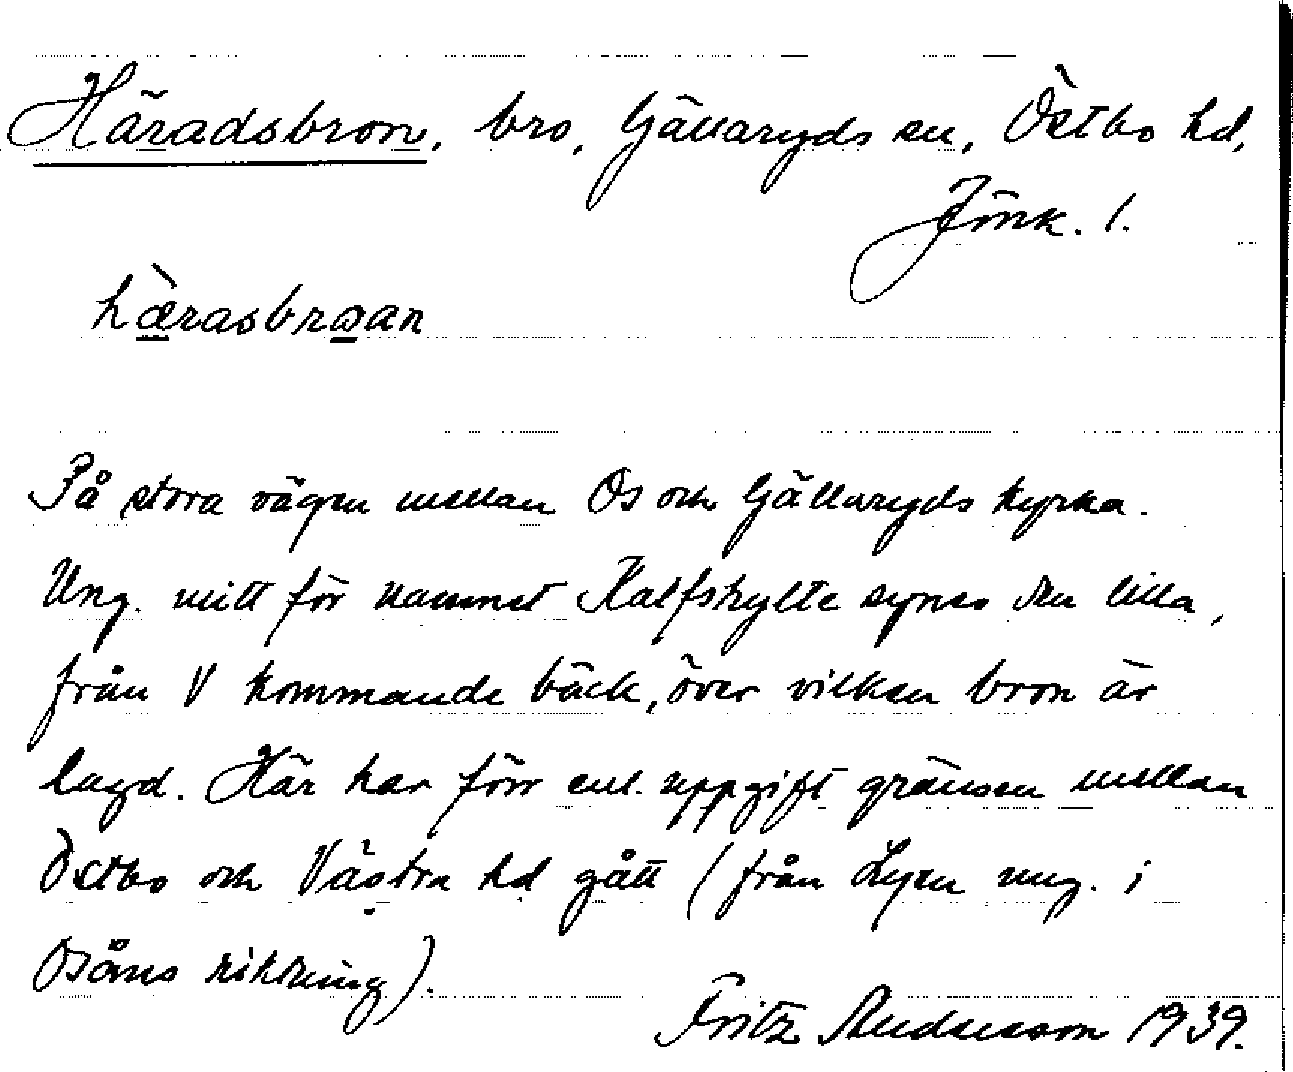 Häradsbron, bro, Gällaryds sn, Östbo hd,
Jönk. l.
hæ̀rasbroan
På stora vägen mellan Os och Gällaryds kyrka.
Ung. mitt för namnet Kalfshylte synes den lilla,
från V kommande bäck, över vilken bron är
lagd. Här har förr enl. uppgift gränsen mellan
Östbo och Västra hd gått (från Lyen ung. i
Osåns riktning).
Fritz Andersson 1939.